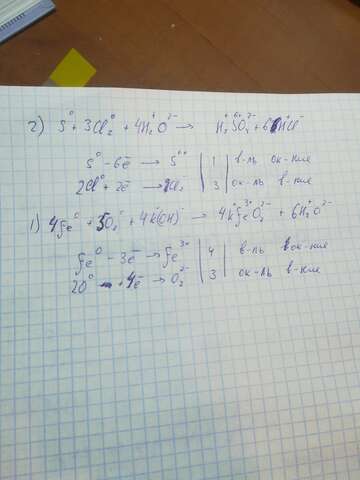 2) S⁰ + 3Cl₂⁰ + 4H₂⁺O²⁻ → H₂⁺S⁶⁺O₄²⁻ + 6H⁺Cl⁻
S⁰ - 6ē → S⁶⁺ | 1 | в-ль ок-ние
2Cl⁰ + 2ē → 2Cl⁻ | 3 | ок-ль в-ние
1) 4Fe⁰ + 3O₂⁰ + 4K(OH)⁻ → 4K⁺Fe³⁺O₂²⁻ + 6H₂⁺O²⁻
Fe⁰ - 3ē → Fe³⁺ | 4 | в-ль ок-ние
2O⁰ + 4ē → O₂²⁻ | 3 | ок-ль в-ние